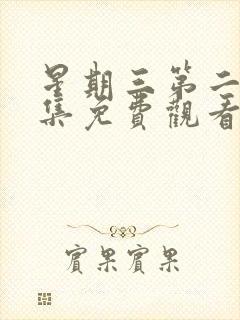 星期三第二
集免費觀看
賓果賓果